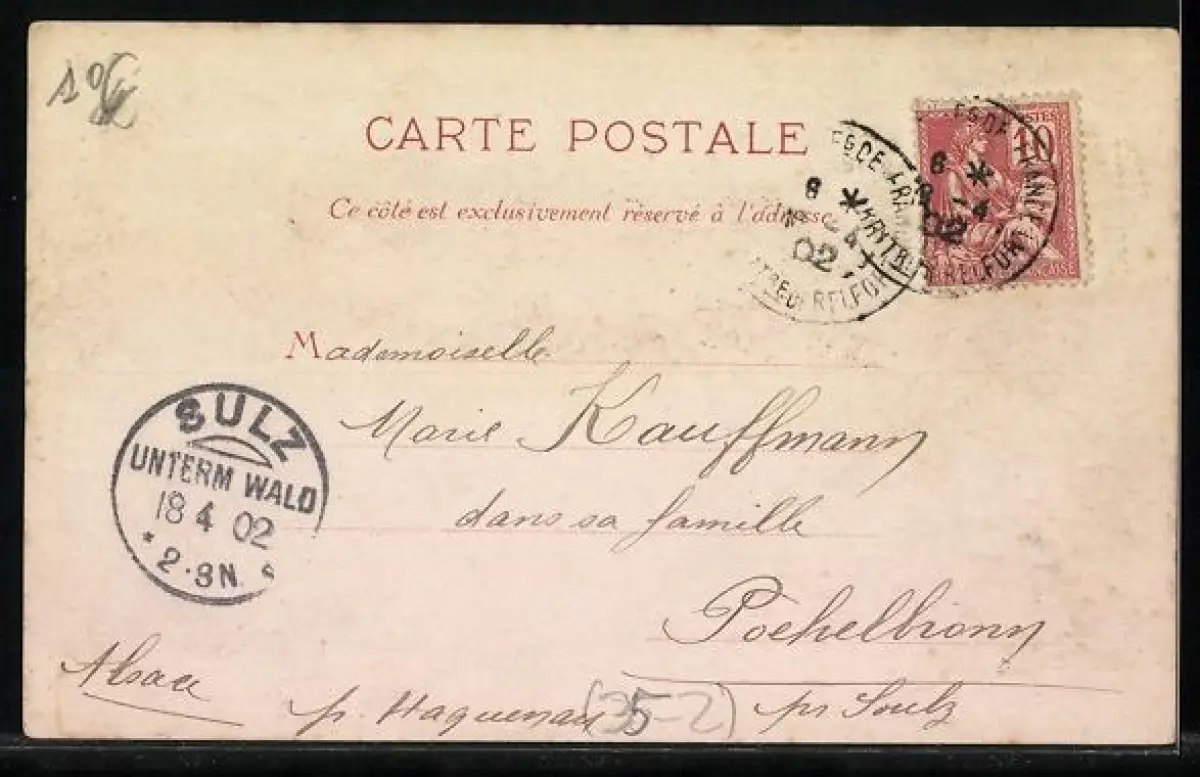 CARTE POSTALE
Ce côté est exclusivement réservé à l'adresse
10
02
BELFORT
02
Mademoiselle
Marie Kauffmann
dans sa famille
Pechelbronn
pr Soultz
pr Haguenau
Alsace
(35-2)
SULZ
UNTERM WALD
18 4 02
* 2-3N.